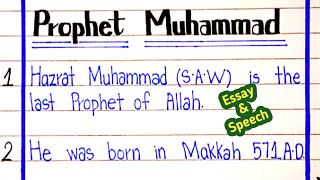 Prophet Muhammad
1 Hazrat Muhammad (S.A.W) is the
last Prophet of Allah.
Essay
&
Speech
2 He was born in Makkah 571 A.D.